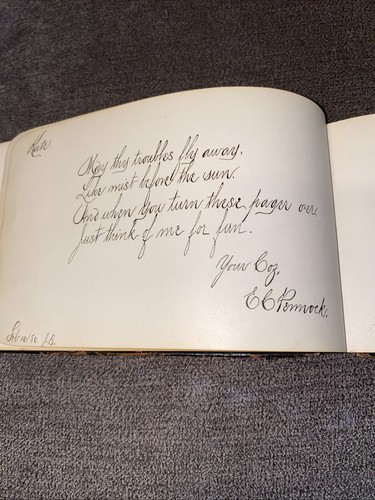 Kate.
May thy troubles fly away.
Like mist before the sun.
And when you turn these pages o-er
Just think of me for fun.
Your Coz,
E C Pennock.